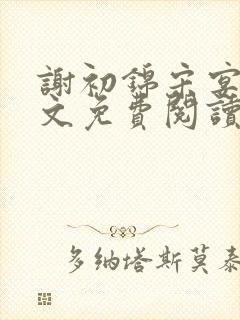 謝初錦宋宴
文免費閱讀
多納塔斯莫泰